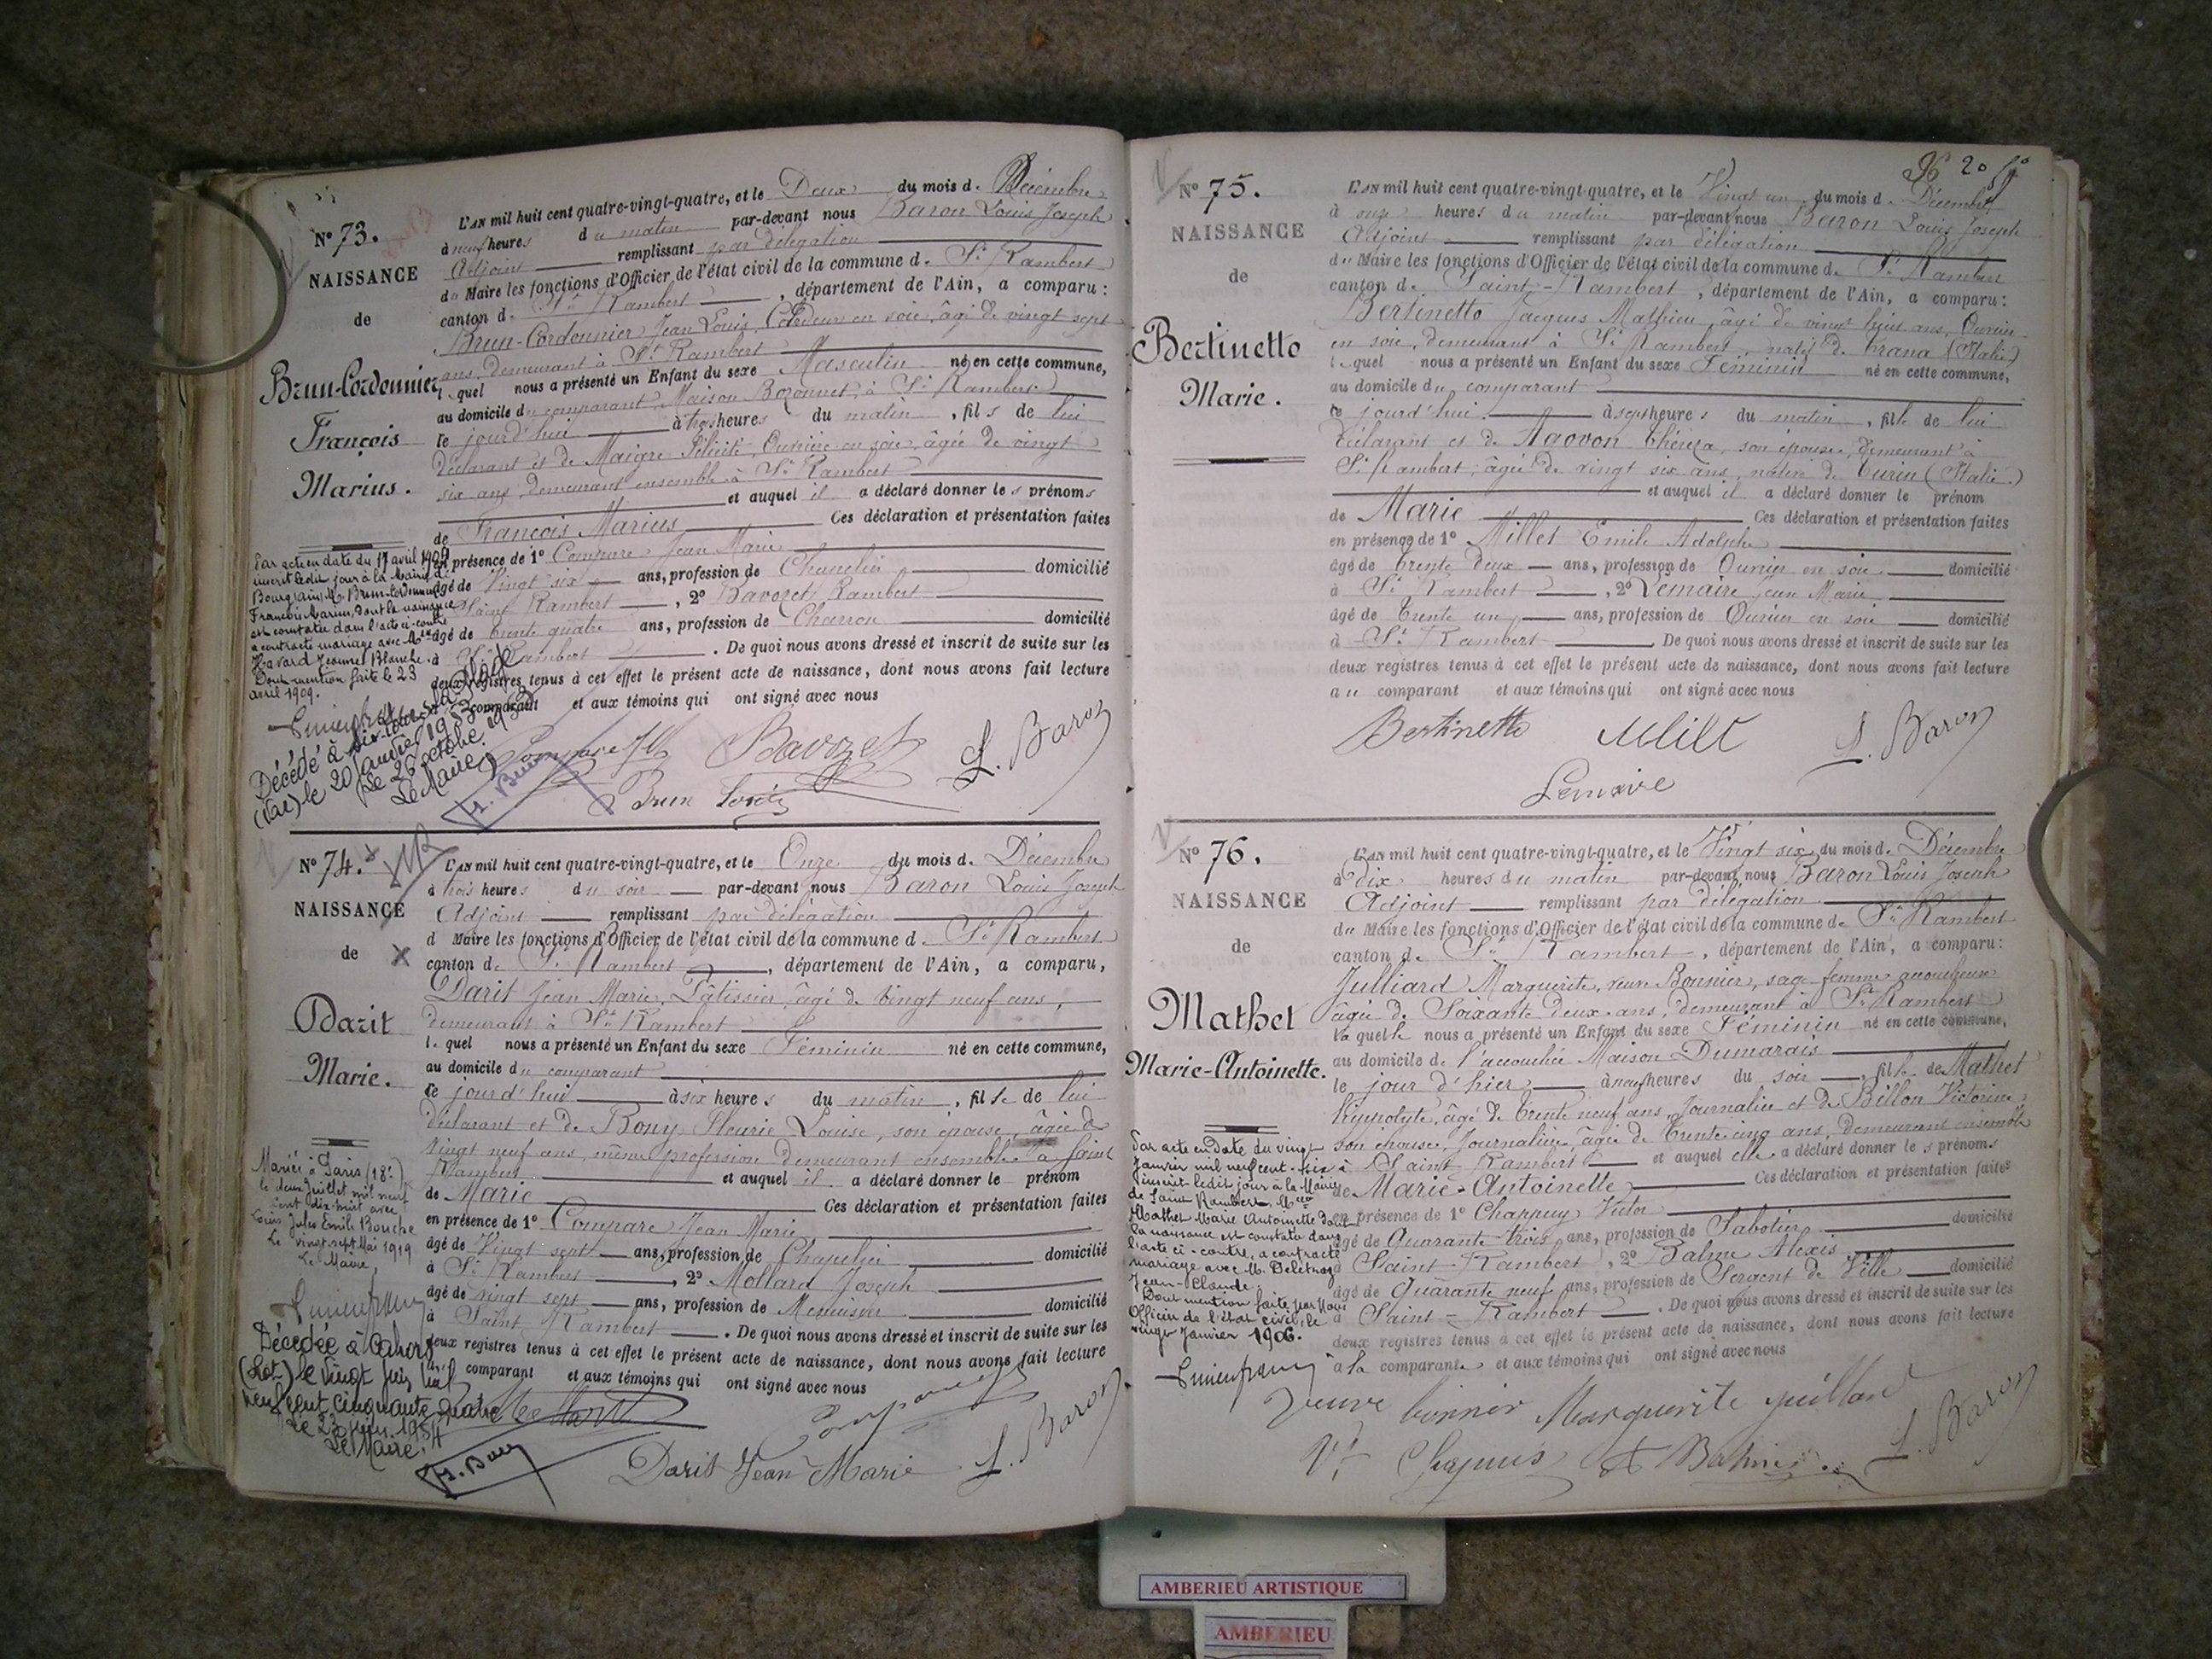 N° 73.
NAISSANCE
de
Brun-Cordonnier
François
Marius.
L'AN mil huit cent quatre-vingt-quatre, et le Deux du mois d. Décembre
à neuf heures du matin par-devant nous Baron Louis Joseph
Adjoint remplissant par délégation
du Maire les fonctions d'Officier de l'état civil de la commune d. St Rambert
canton d. St Rambert, département de l'Ain, a comparu :
Brun-Cordonnier Jean Louis, Cardeur en soie, âgé de vingt sept
ans, demeurant à St Rambert
lequel nous a présenté un Enfant du sexe Masculin né en cette commune,
au domicile du comparant, Maison Bozonnet, à St Rambert
ce jourd'hui à trois heures du matin, fils de lui
déclarant et de Maigre Félicité, Ouvrière en soie, âgée de vingt
six ans, demeurant ensemble à St Rambert
et auquel il a déclaré donner les prénoms
de François Marius Ces déclaration et présentation faites
en présence de 1° Compare Jean Marie
âgé de Vingt six ans, profession de Chapelier domicilié
à Saint Rambert, 2° Bavozet Rambert
âgé de trente quatre ans, profession de Charron domicilié
à St Rambert. De quoi nous avons dressé et inscrit de suite sur les
deux registres tenus à cet effet le présent acte de naissance, dont nous avons fait lecture
au comparant et aux témoins qui ont signé avec nous
Par acte en date du 17 avril 1909
inscrit ledit jour à la Mairie de
Bourgoin, M. Brun-Cordonnier
François Marius, dont la naissance
est constatée dans l'acte ci-contre
a contracté mariage avec Melle
Havard Jeanne Blanche.
Dont mention faite le 23
avril 1909.
Décédé à Six-Fours-la-Plage
(Var) le 20 janvier 1953
Le 26 octobre 19
Le Maire
H. Bum
Compare JM Bavozet L. Baron
Brun Louis
N° 74.
NAISSANCE
de
Darit
Marie.
L'AN mil huit cent quatre-vingt-quatre, et le Onze du mois d. Décembre
à trois heures du soir par-devant nous Baron Louis Joseph
Adjoint remplissant par délégation
d Maire les fonctions d'Officier de l'état civil de la commune d. St Rambert
canton d. St Rambert, département de l'Ain, a comparu,
Darit Jean Marie, Pâtissier, âgé de vingt neuf ans,
demeurant à St Rambert
lequel nous a présenté un Enfant du sexe Féminin né en cette commune,
au domicile du comparant
ce jourd'hui à six heures du matin, fille de lui
déclarant et de Bouy Fleurie Louise, son épouse, âgée de
vingt neuf ans, même profession demeurant ensemble à Saint
Rambert et auquel il a déclaré donner le prénom
de Marie Ces déclaration et présentation faites
en présence de 1° Compare Jean Marie
âgé de Vingt sept ans, profession de Chapelier domicilié
à St Rambert, 2° Mollard Joseph
âgé de vingt sept ans, profession de Menuisier domicilié
à Saint Rambert. De quoi nous avons dressé et inscrit de suite sur les
deux registres tenus à cet effet le présent acte de naissance, dont nous avons fait lecture
au comparant et aux témoins qui ont signé avec nous
Mariée à Paris (18e)
le deux Juillet mil neuf
cent dix-huit avec
Louis Jules Emile Bouche
Le vingt-sept Mai 1919
Le Maire,
Décédée à Cahors
(Lot) le vingt juin mil
neuf cent cinquante quatre
Le 23 juin 1954
Le Maire:
Mollard Compare
Darit Jean Marie L. Baron
26 20
N° 75.
NAISSANCE
de
Bertinetto
Marie.
L'AN mil huit cent quatre-vingt-quatre, et le Vingt un du mois d. Décembre
à onze heures du matin par-devant nous Baron Louis Joseph
Adjoint remplissant par délégation
du Maire les fonctions d'Officier de l'état civil de la commune d. St Rambert
canton d. Saint-Rambert, département de l'Ain, a comparu :
Bertinetto Jacques Mathieu, âgé de vingt huit ans, Ouvrier
en soie, demeurant à St Rambert, natif de Trana (Italie)
lequel nous a présenté un Enfant du sexe Féminin né en cette commune,
au domicile du comparant
ce jourd'hui à sept heures du matin, fille de lui
déclarant et de Aaovon Thérèza, son épouse, demeurant à
St Rambert, âgée de vingt six ans, native de Turin (Italie)
et auquel il a déclaré donner le prénom
de Marie Ces déclaration et présentation faites
en présence de 1° Millet Emile Adolphe
âgé de trente deux ans, profession de Ouvrier en soie domicilié
à St Rambert, 2° Lemaire Jean Marie
âgé de trente un ans, profession de Ouvrier en soie domicilié
à St Rambert De quoi nous avons dressé et inscrit de suite sur les
deux registres tenus à cet effet le présent acte de naissance, dont nous avons fait lecture
au comparant et aux témoins qui ont signé avec nous
Bertinetto Millet L. Baron
Lemaire
N° 76.
NAISSANCE
de
Mathet
Marie-Antoinette.
L'AN mil huit cent quatre-vingt-quatre, et le Vingt six du mois d. Décembre
à dix heures du matin par-devant nous Baron Louis Joseph
Adjoint remplissant par délégation
du Maire les fonctions d'Officier de l'état civil de la commune de St Rambert
canton de St Rambert, département de l'Ain, a comparu :
Julliard Marguerite, veuve Bonnier, sage femme accoucheuse
âgée de Soixante deux ans, demeurant à St Rambert
laquelle nous a présenté un Enfant du sexe Féminin né en cette commune,
au domicile de l'accouchée Maison Dumarais
le jour d'hier à neuf heures du soir, fille de Mathet
hippolyte, âgé de trente neuf ans, Journalier et de Billon Victorine
son épouse, Journalière, âgée de trente cinq ans, demeurant ensemble
à Saint Rambert et auquel elle a déclaré donner les prénoms
de Marie-Antoinette Ces déclaration et présentation faites
en présence de 1° Charpuy Victor
âgé de Quarante trois ans, profession de Sabotier domicilié
à Saint-Rambert, 2° Balme Alexis
âgé de Quarante neuf ans, profession de Sergent de Ville domicilié
à Saint-Rambert. De quoi nous avons dressé et inscrit de suite sur les
deux registres tenus à cet effet le présent acte de naissance, dont nous avons fait lecture
à la comparante et aux témoins qui ont signé avec nous
Par acte en date du vingt
Janvier mil neuf cent-six
inscrit ledit jour à la Mairie
de Saint Rambert, Melle
Mathet Marie Antoinette dont
la naissance est constatée dans
l'acte ci-contre, a contracté
mariage avec M. Delétraz
Jean-Claude.
Dont mention faite par Nous
Officier de l'état civil, le
vingt Janvier 1906.
veuve bonnier Marguerite juillard
L. Baron
AMBERIEU ARTISTIQUE
AMBERIEU